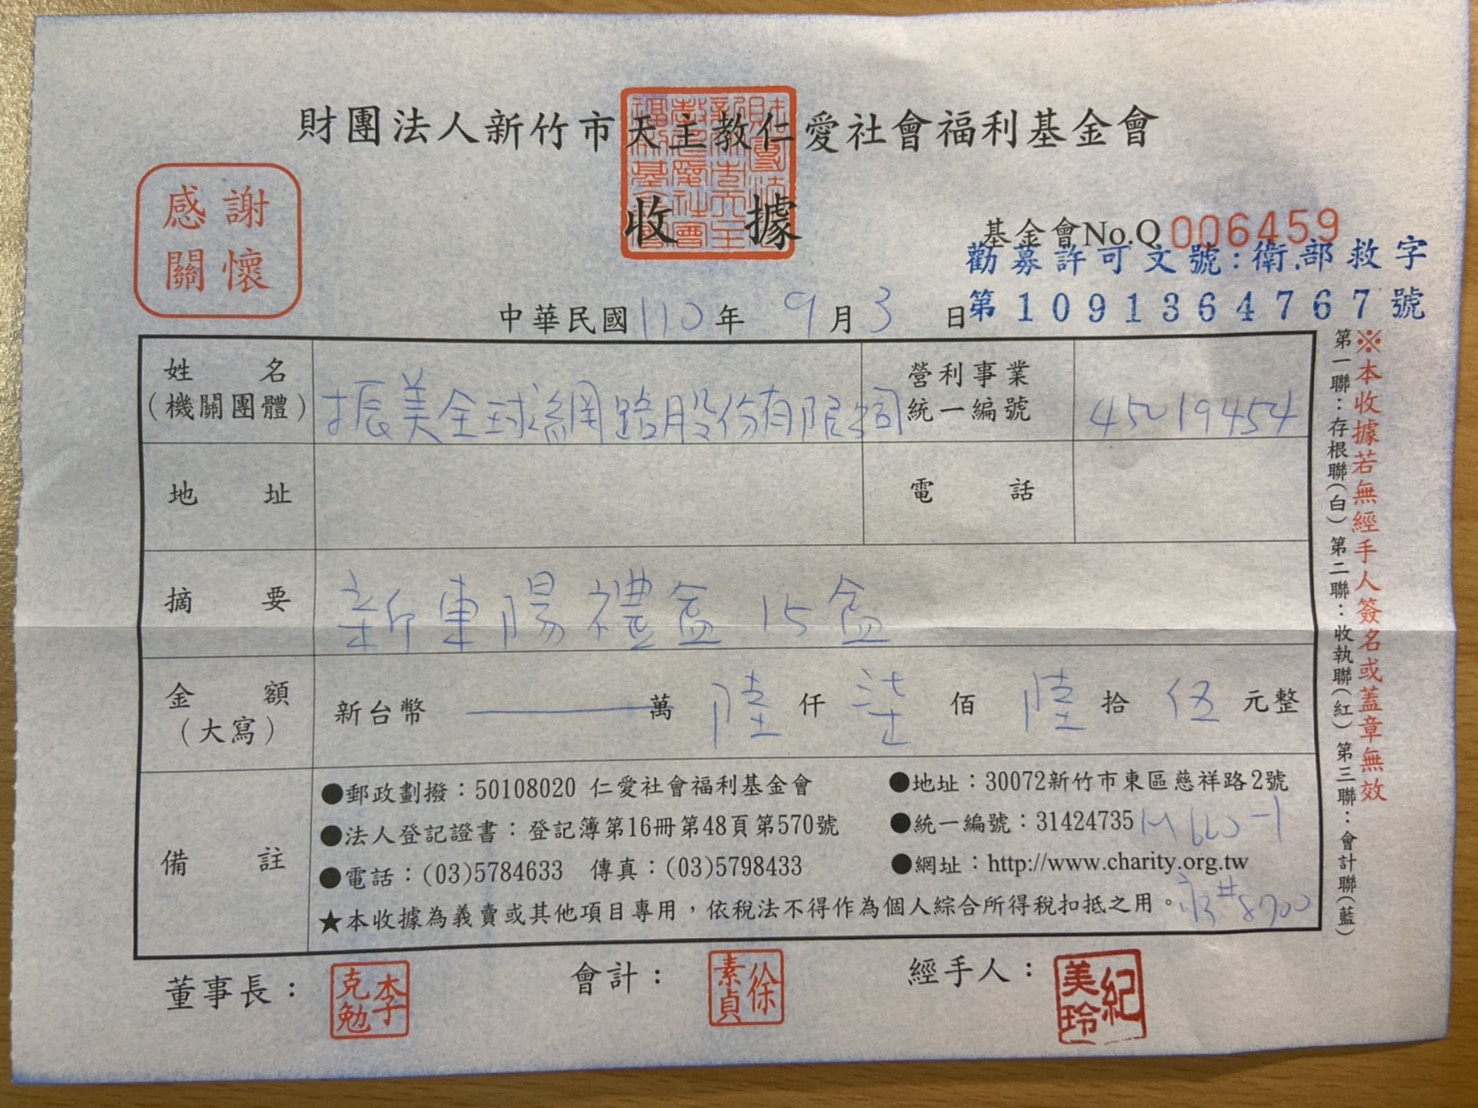 財團法人新竹市天主教仁愛社會福利基金會
收據
感謝
關懷
基金會No.Q 006459
勸募許可文號:衛.部救字
第1091364767號
中華民國110年9月3日
姓名
(機關團體)
振美全球網路股份有限公司
營利事業
統一編號
45019454
地址
電話
摘要
新東陽禮盒15盒
金額
(大寫)
新台幣 —— 萬 陸 仟 柒 佰 陸 拾 伍 元整
備註
●郵政劃撥：50108020 仁愛社會福利基金會
●地址：30072新竹市東區慈祥路2號
●法人登記證書：登記簿第16冊第48頁第570號
●統一編號：31424735
●電話：(03)5784633 傳真：(03)5798433
●網址：http://www.charity.org.tw
★本收據為義賣或其他項目專用，依稅法不得作為個人綜合所得稅扣抵之用。
第一聯：存根聯(白) 第二聯：收執聯(紅) 第三聯：會計聯(藍)
※本收據若無經手人簽名或蓋章無效
董事長：
李克勉
會計：
徐素貞
經手人：
紀美玲